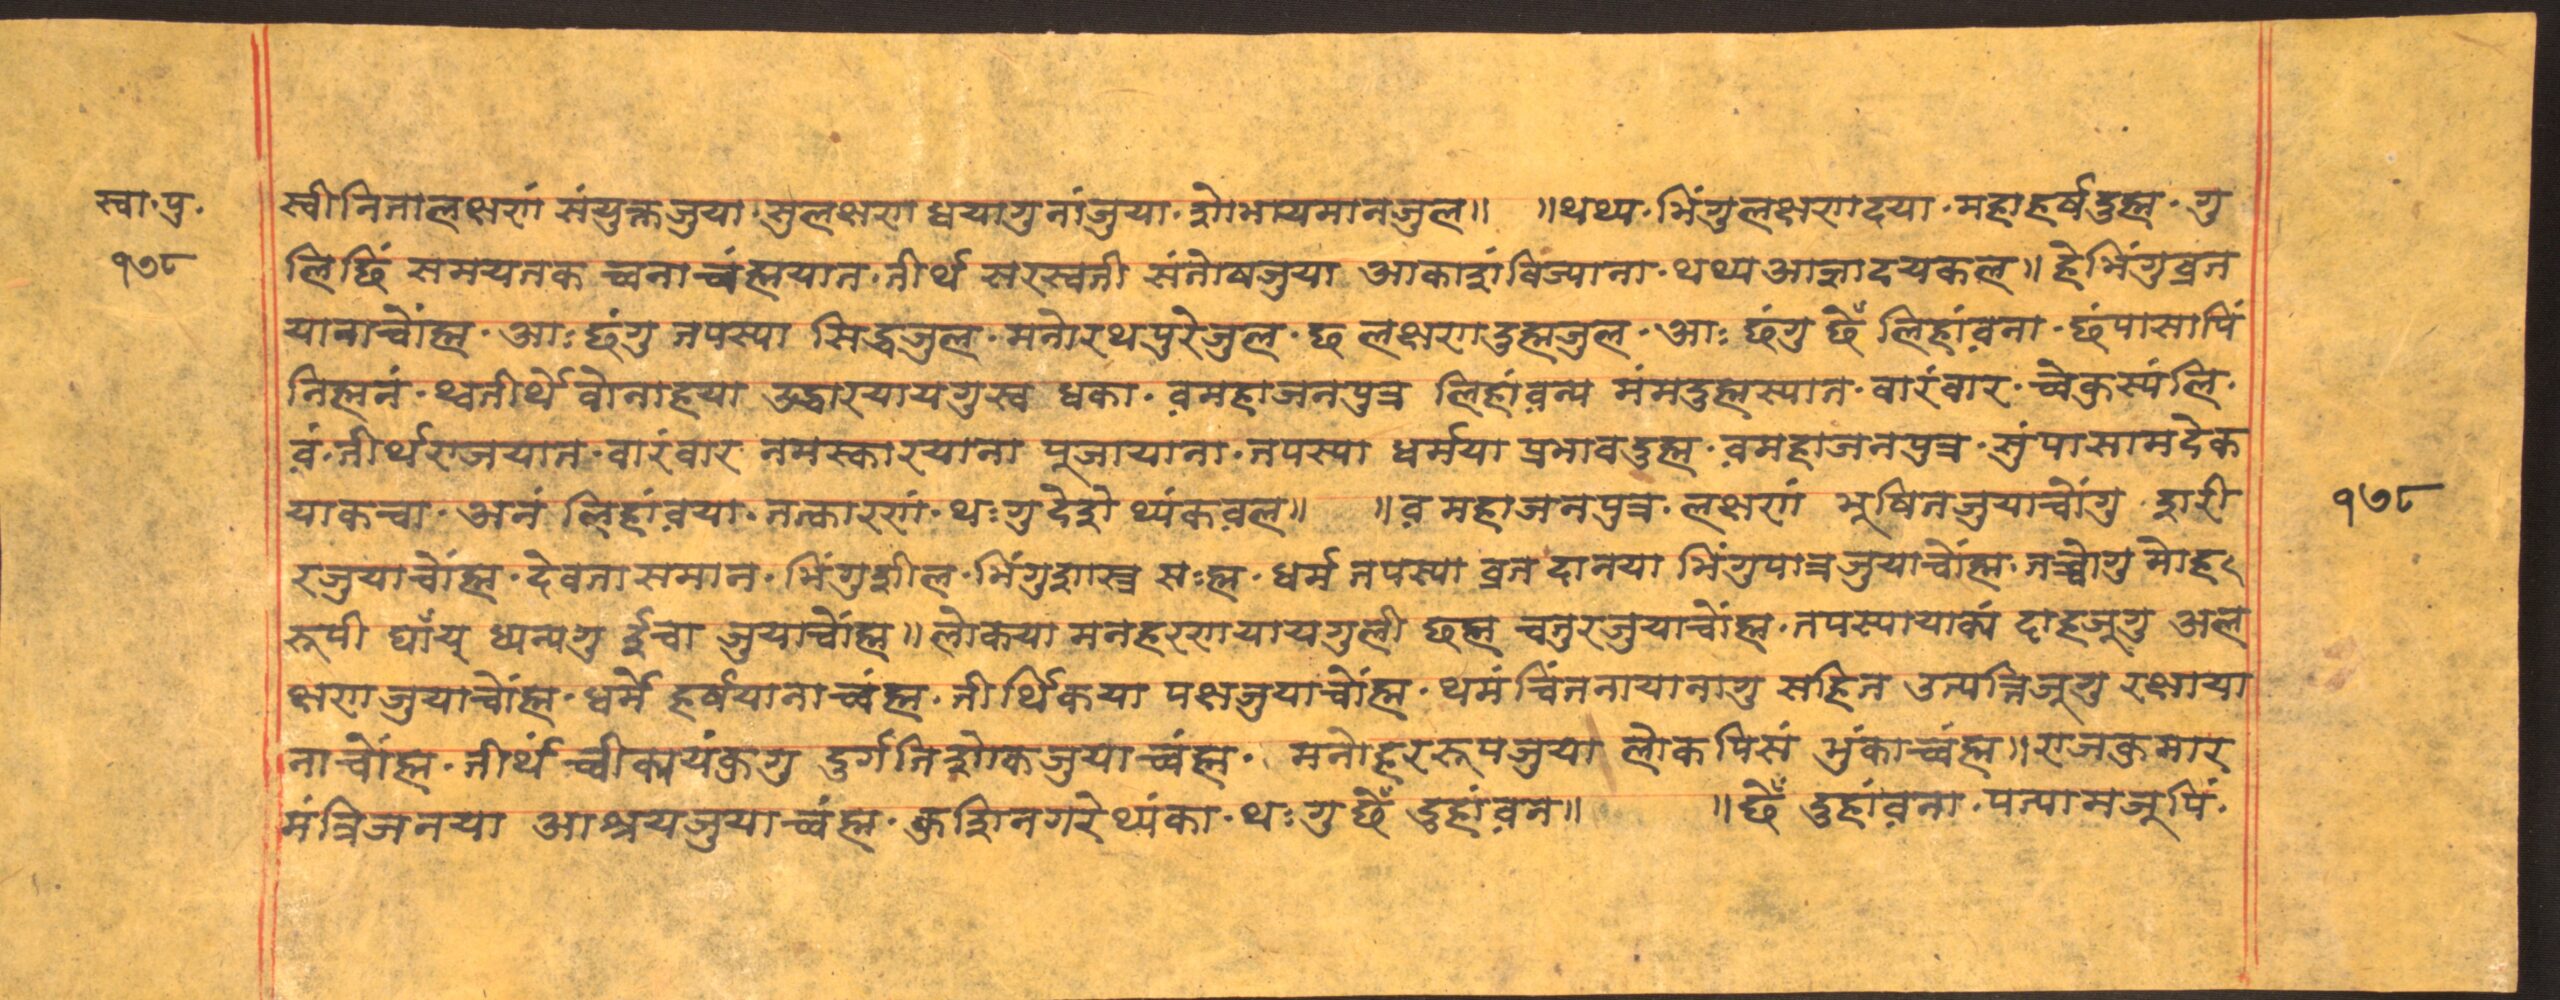 स्वा.पु.
१७८
स्वीनितालक्षणं संयुक्तजुया.सुलक्षणा धयागुनांजुया.शोभायमानजुल॥ ॥थथ्य.भिंगुलक्षणदया.महाहर्षदुह्म.गु
लिछिं समयतक च्वनाच्वंह्मयात.तीर्थ सरस्वती संतोषजुया आकाशंविज्याना.थथ्यआज्ञादयकल॥हेभिंगुव्रत
यानाच्वोंह्म.आः छंगु तपस्या सिद्धजुल.मनोरथपुरेजुल.छ लक्षणदुह्मजुल.आः छंगु छेँ लिहांव़ना.छंपासापिं
निह्मनं.थ्वतीर्थे वोनाहया उद्धारयायगुस्व धका.व़महाजनपुत्र लिहांव़न्य मंमदुह्मस्यात.वारंवार.च्वेकुस्यंलि.
व़ं.तीर्थराजयात.वारंवार नमस्कारयाना पूजायाना.तपस्या धर्मया प्रभावदुह्म.व़महाजनपुत्र.सुंपासामदेक
याकचा.अनं लिहांव़या.तत्कारणं.थःगुदेशे थ्यंकव़ल॥ ॥व़ महाजनपुत्र.लक्षणं भूषितजुयाच्वोंगु.शरी
रजुयाचोंह्म.देवता समान.भिंगुशील.भिंगुशास्त्र सःह्म.धर्म तपस्या व्रत दानया भिंगुपात्रजुयाच्वोंह्म.तच्वोगु मोह
रूपी घाँय् ध्यन्यगु र्इचा जुयाच्वोंह्म॥लोकया मनहरणयायगुली छह्म चतुरजुयाच्वोंह्म.तपस्यायाक्यं दाहजूगु अल
क्षणजुयाच्वोंह्म.धर्मे हर्षयानाच्वंह्म.तीर्थिकया पक्षजुयाच्वोंह्म.थमं चिंतनायानागु सहित उत्पत्तिजूगु रक्षाया
नाचोंह्म.तीर्थं च्वीकायंकुगु दुर्गतिशोकजुयाच्वंह्म. मनोहररूपजुया लोकपिसं भुंकाच्वंह्म॥राजकुमार
मंत्रिजनया आश्रयजुयाच्वंह्म.कुशिनगरे थ्यंका.थःगु छेँ दुहांव़न॥ ॥छेँ दुहांव़ना.पत्यामजूपिं.
१७८